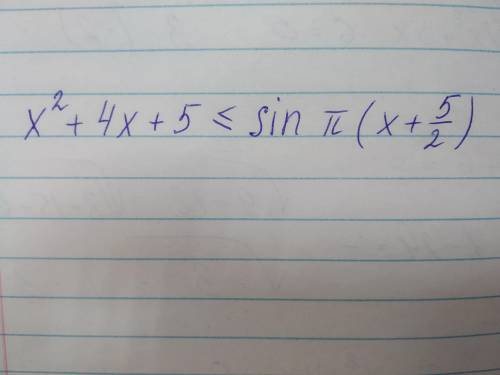 x² + 4x + 5 ≤ sin π(x + 5/2)